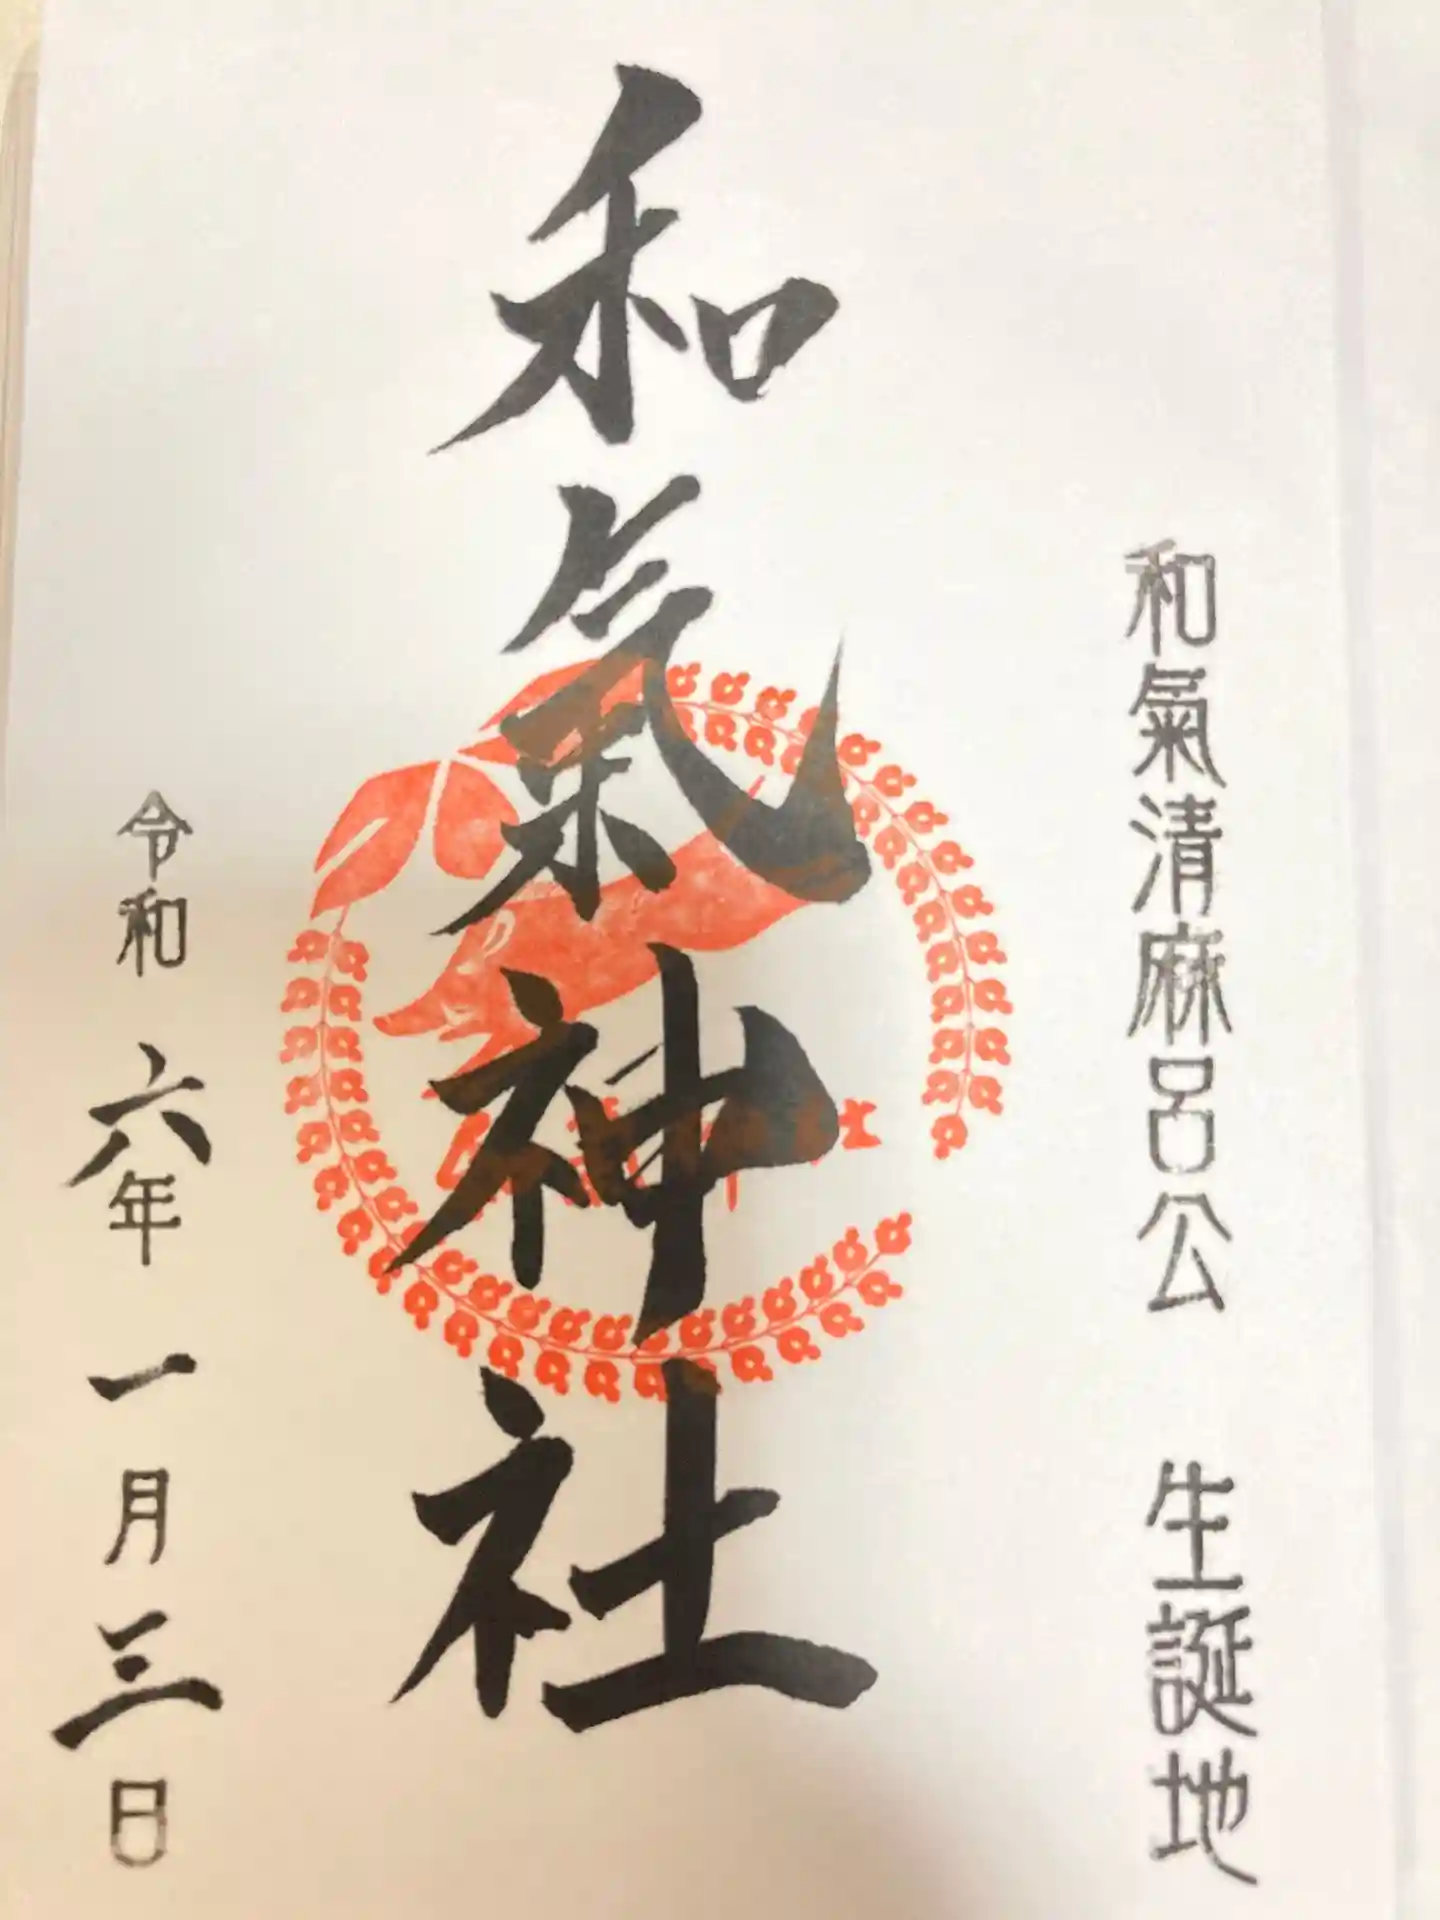 和氣清麻呂公 生誕地
和氣神社
令和六年一月三日